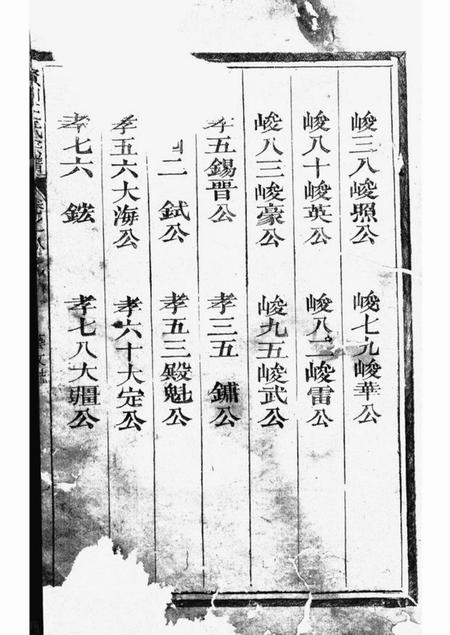 峻三八峻照公
峻七九峻華公
峻八十峻英公
峻八二峻雷公
峻八三峻豪公
峻九五峻武公
孝五錫晋公
孝三五 鏞公
二 弒公
孝五三殿魁公
孝五六大海公
孝六十大定公
孝七六 鋐
孝七八大疆公